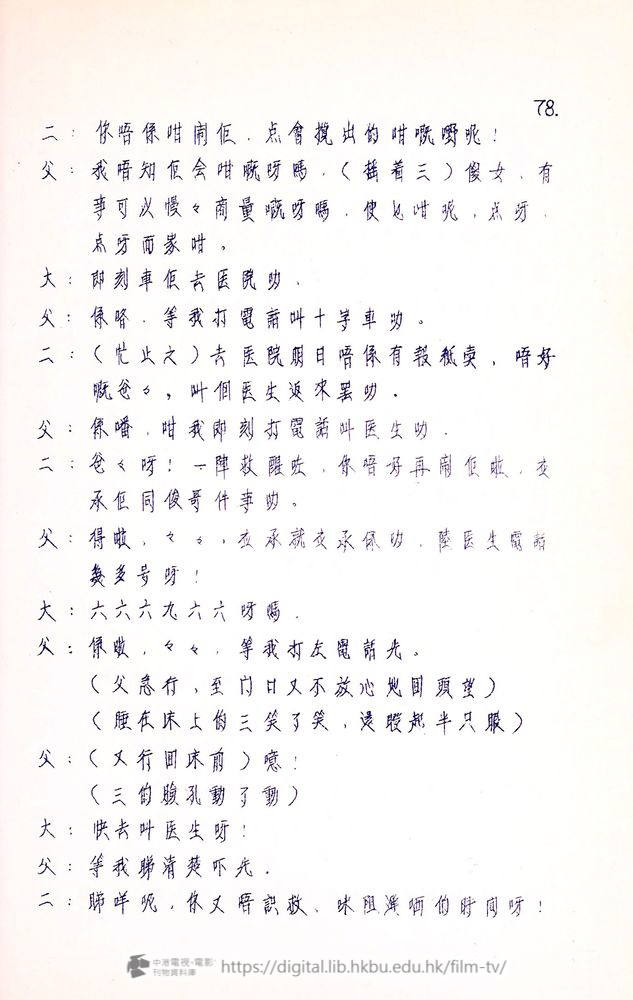 78.
二：你唔係咁鬧佢，点會攪出的咁嘅嘢呢！
父：我唔知佢会咁嘅呀嗎，（搖着三）傻女，有
事可以慢々商量嘅呀嗎，使乜咁呢，点呀，
点呀而家咁。
大：即刻車佢去医院叻，
父：係咯，等我打電話叫十字車叻。
二：（忙止之）去医院明日唔係有報紙賣，唔好
嘅爸々，叫個医生返來罷叻。
父：係噃，咁我即刻打電話叫医生叻，
二：爸々呀！一陣救醒咗，你唔好再鬧佢啦，应
承佢同俊哥件事叻。
父：得啦，々々，应承就应承係叻，陸医生電話
幾多号呀！
大：六六六九六六呀嗎，
父：係啦，々々，等我打左電話先。
（父急行，至门口又不放心地回頭望）
（睡在床上的三笑了笑，還瞪起半只眼）
父：（又行回床前）噫！
（三的臉孔動了動）
大：快去叫医生呀！
父：等我睇清楚吓先，
二：睇咩呢，你又唔識救，咪阻滯晒的時间呀！
中港電視・電影
刊物資料庫
https://digital.lib.hkbu.edu.hk/film-tv/